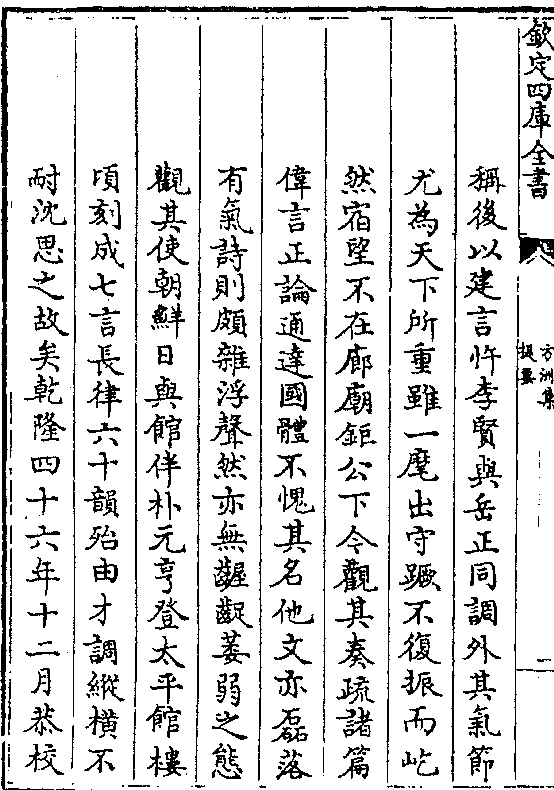 欽定四庫全書
方洲集
提要
二
稱後以建言忤李賢與岳正同調外其氣節
尤為天下所重雖一麾出守蹶不復振而屹
然宿望不在廊廟鉅公下今觀其奏疏諸篇
偉言正論通達國體不愧其名他文亦磊落
有氣詩則頗雜浮聲然亦無齷齪萎弱之態
觀其使朝鮮日與館伴朴元亨登太平館樓
頃刻成七言長律六十韻殆由才調縱横不
耐沈思之故矣乾隆四十六年十二月恭校